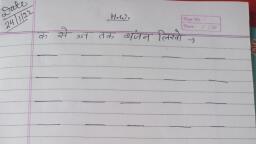 Date
24/1/22
H.W.
Page No.
Date
क से ज्ञ तक व्यंजन लिखो →